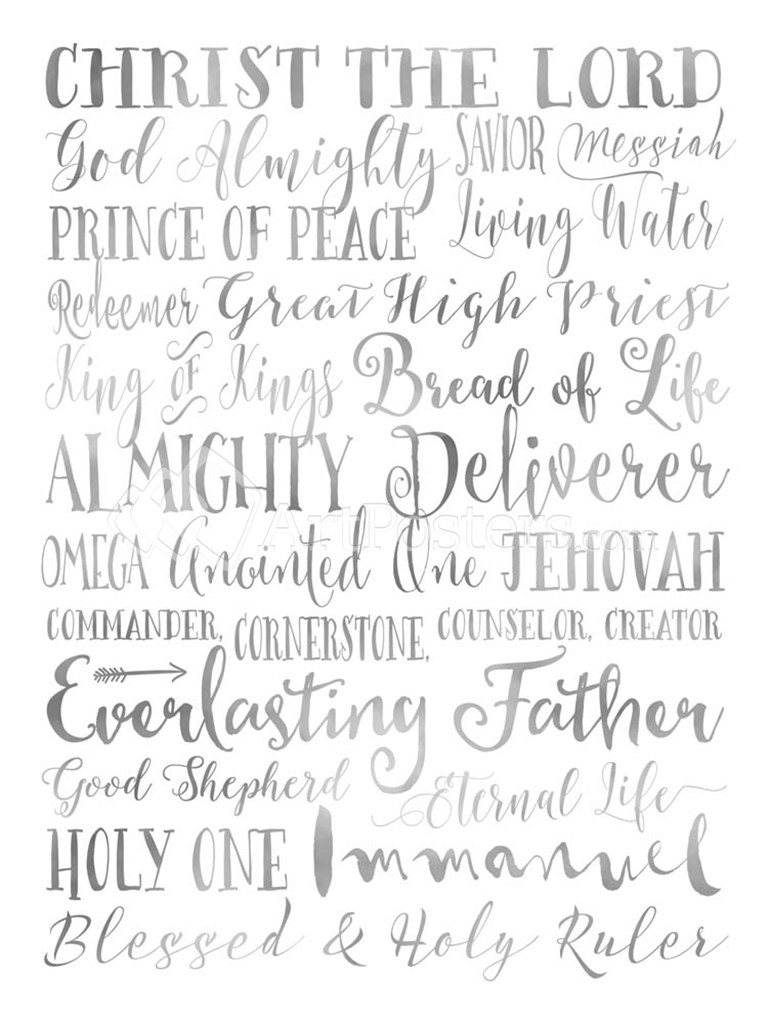 CHRIST THE LORD
God Almighty SAVIOR Messiah
PRINCE OF PEACE Living Water
Redeemer Great High Priest
King OF Kings Bread of Life
ALMIGHTY Deliverer
ArtPosters.com
OMEGA Anointed One JEHOVAH
COMMANDER, CORNERSTONE, COUNSELOR, CREATOR
Everlasting Father
Good Shepherd Eternal Life
HOLY ONE Immanuel
Blessed & Holy Ruler